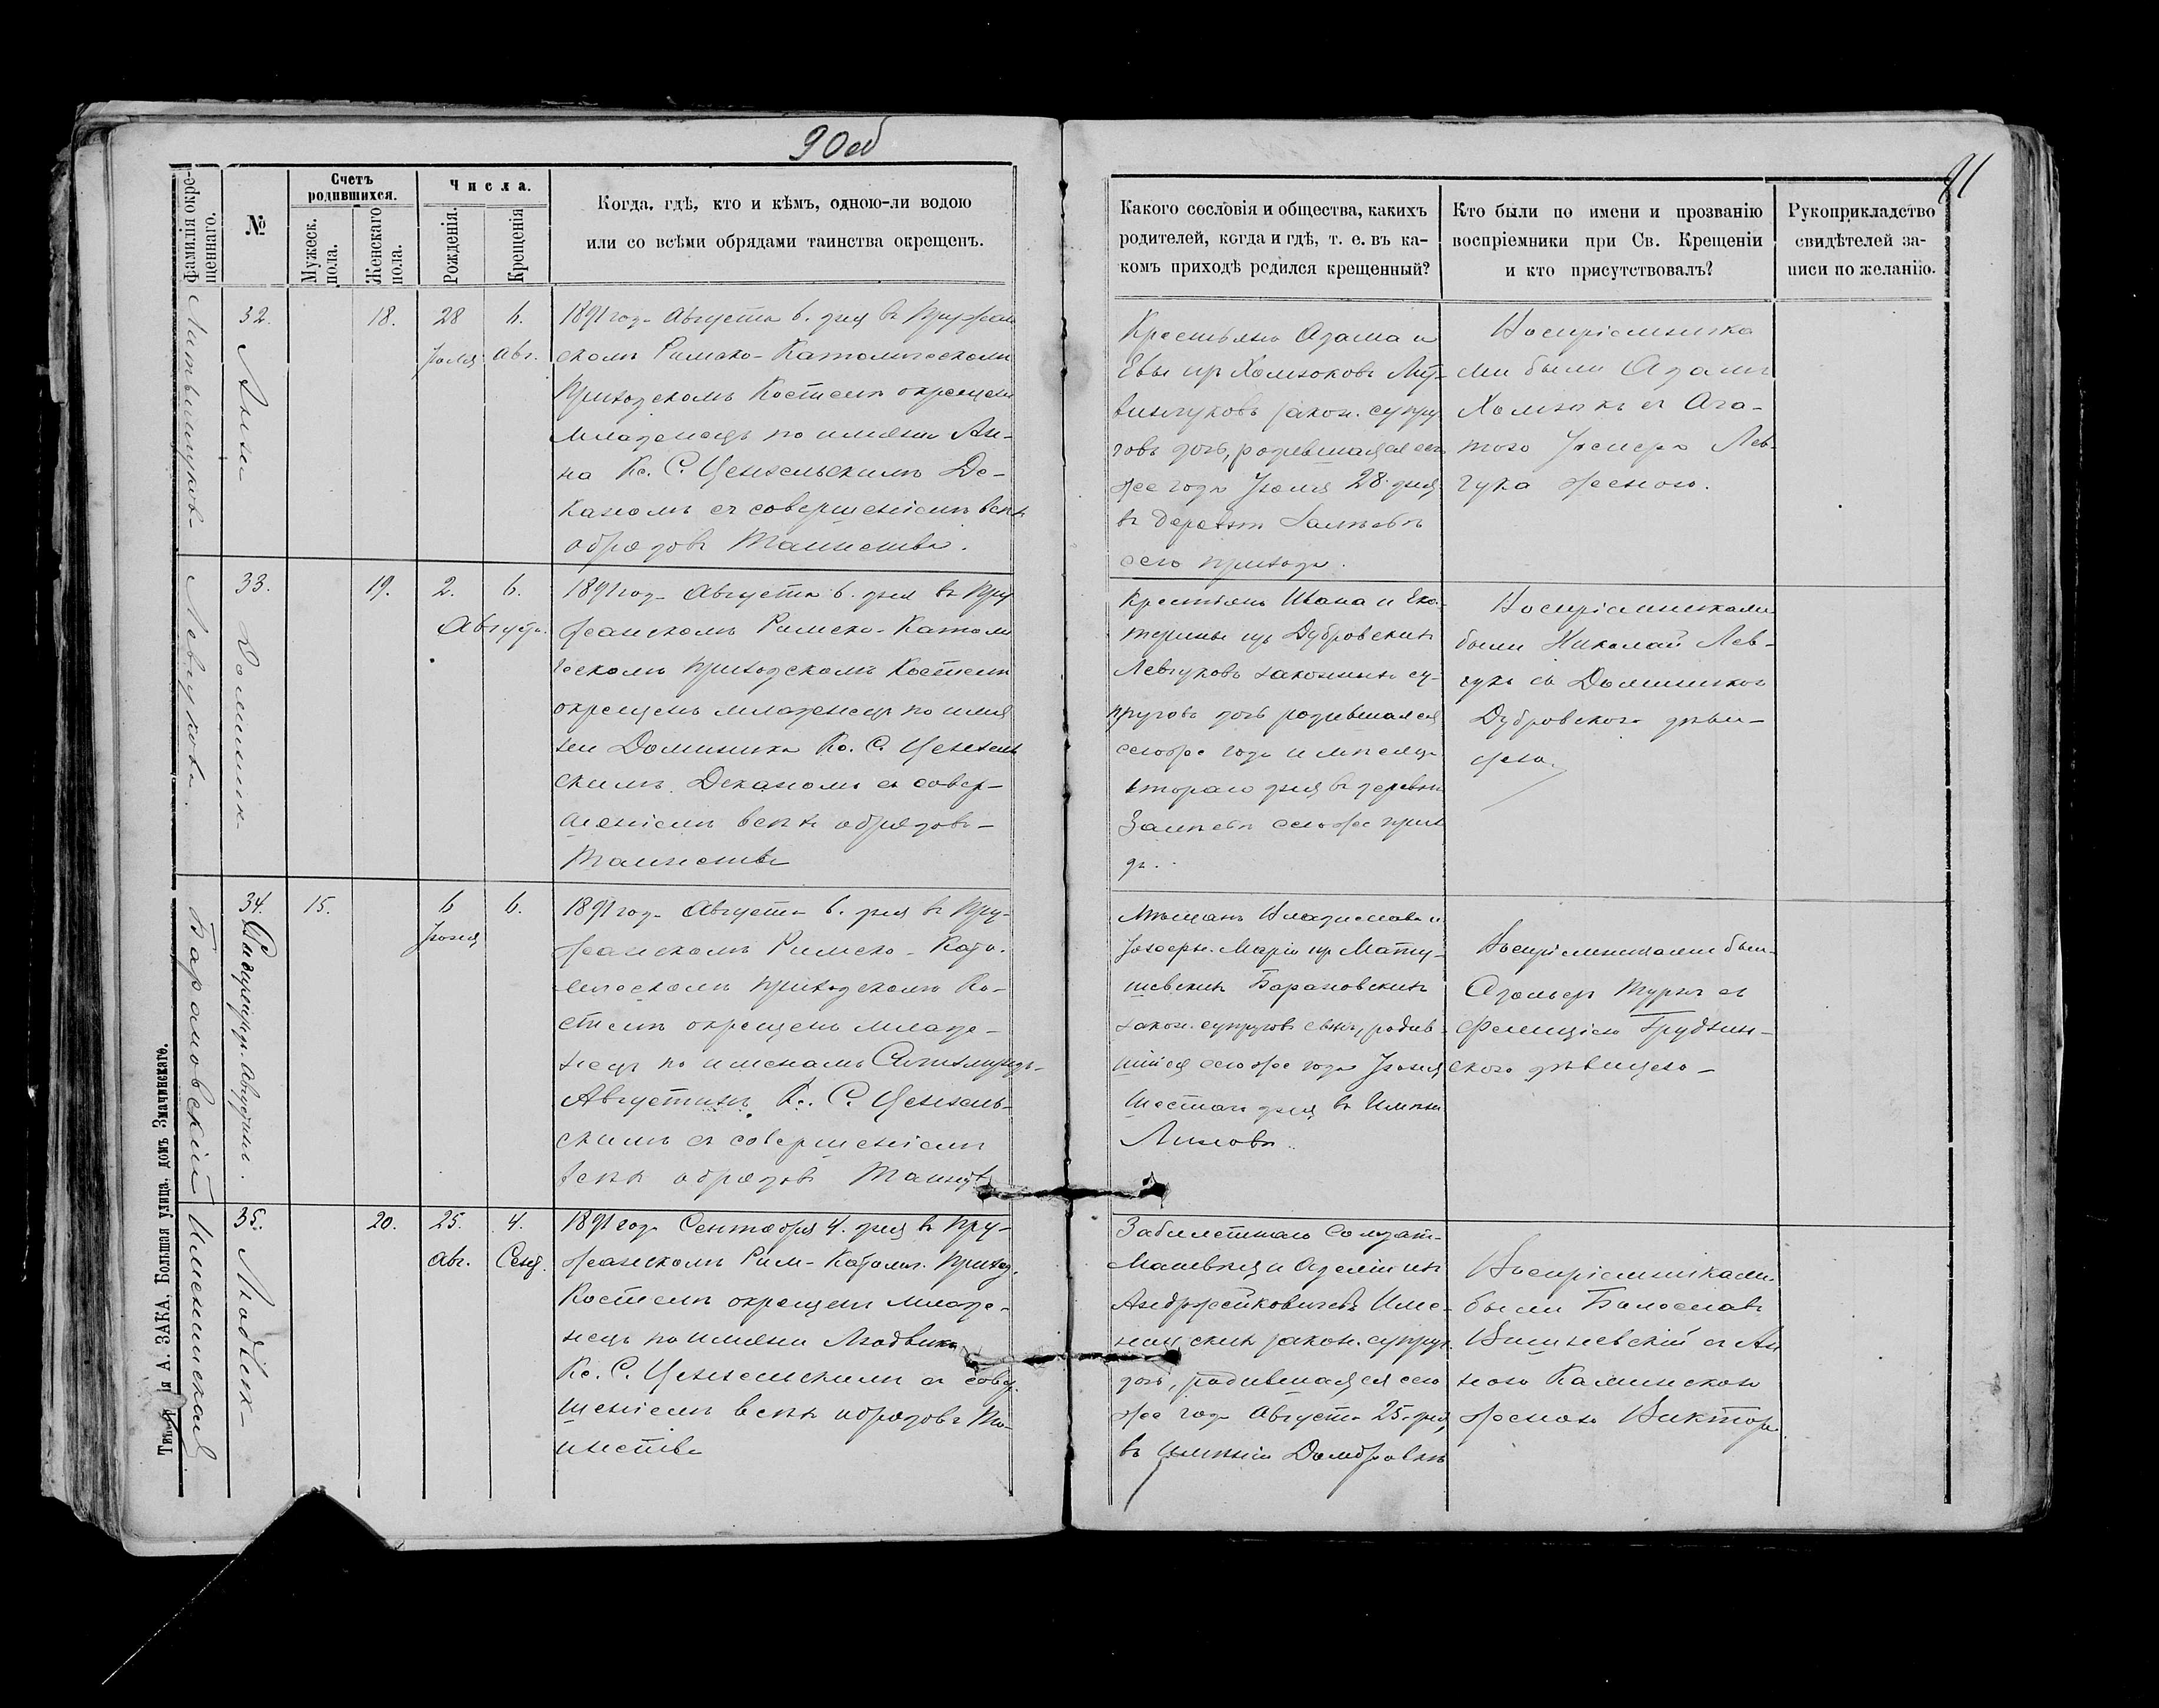 90 об
91
Фамилія окре-
щеннаго.
№
Счетъ
родившихся.
Мужеск.
пола.
Женскаго
пола.
Числа.
Рожденія.
Крещенія
Когда, гдѣ, кто и кѣмъ, одною-ли водою
или со всѣми обрядами таинства окрещенъ.
Какого сословія и общества, какихъ
родителей, когда и гдѣ, т. е. въ ка-
комъ приходѣ родился крещенный?
Кто были по имени и прозванію
воспріемники при Св. Крещеніи
и кто присутствовалъ?
Рукоприкладство
свидѣтелей за-
писи по желанію.
Литвинчуковъ
32.
Анна
18.
28
Іюля
6.
Авг.
1891 года Августа 6. дня въ Пружан
скомъ Римско-Католическомъ
Приходскомъ Костелѣ окрещенъ
младенецъ по имени Ан-
на Кс. С. Ценхельскимъ Де-
каномъ съ совершеніемъ всѣхъ
обрядовъ Таинства.
Крестьянъ Адама и
Евы изъ Хомюковъ Лит-
винчуковъ закон. супру
говъ дочь, родившаяся сего
же года Іюля 28. дня
въ деревнѣ
сего прихода.
Воспріемника
ми были Адамъ
Хомюкъ съ Ага-
тою Іосифа Лев-
чука женою.
Левчуковъ
33.
Доминик-
19.
2.
6.
Августа
1891 года Августа 6. дня въ Пру
жанскомъ Римско-Католи
ческомъ Приходскомъ Костелѣ
окрещенъ младенецъ по име
ни Доминика Кс. С. Ценхель
скимъ Деканомъ съ совер-
шеніемъ всѣхъ обрядовъ-
Таинства
Крестьянъ Ивана и Ека-
терины изъ Дубровскихъ
Левчуковъ законныхъ су-
пруговъ дочь родившаяся
сего же года и мѣсяца
втораго дня въ деревнѣ
сего же прихо
да.
Воспріемниками
были Николай Лев-
чукъ съ Доминикою
Дубровскою дѣви-
цею.
Барановскій
34.
Сигизмундъ-Августинъ.
15.
6
Іюня
6.
1891 года Августа 6. дня въ Пру-
жанскомъ Римско-Като-
лическомъ Приходскомъ Ко-
стелѣ окрещенъ младе-
нецъ по именамъ Сигизмундъ-
Августинъ Кс. С. Ценхель-
скимъ съ совершеніемъ
всѣхъ обрядовъ Таинств
Мѣщанъ Владислава и
Іозефы-Маріи изъ Мату-
шевскихъ Барановскихъ
закон. супруговъ сынъ, родив-
шійся сего же года Іюня
шестаго дня въ Имѣніи
Линовѣ.
Воспріемниками были
Адольфъ Туръ съ
Фелиціею Грудзин-
скою дѣвицею-
Именинская
35.
Людвик-
20.
25.
Авг.
4.
Сент.
1891 года Сентября 4. дня въ Пру-
жанскомъ Рим-Катол. Приход.
Костелѣ окрещенъ младе-
нецъ по имени Людвика
Кс. С. Ценхельскимъ съ совер
шеніемъ всѣхъ обрядовъ Та-
инства
Забилетнаго Солдат-
Матвѣя и Аделіи изъ
Андржейковичевъ Име-
нинскихъ закон. супруг.
дочь, родившаяся сего
же года Августа 25. дня,
въ Имѣніи Домбровкѣ
Воспріемниками
были Болеславъ
Вишневскій съ Ан
ною Каминскою
женою Виктора.
А. ЗАКА, Большая улица, домъ Значинскаго.